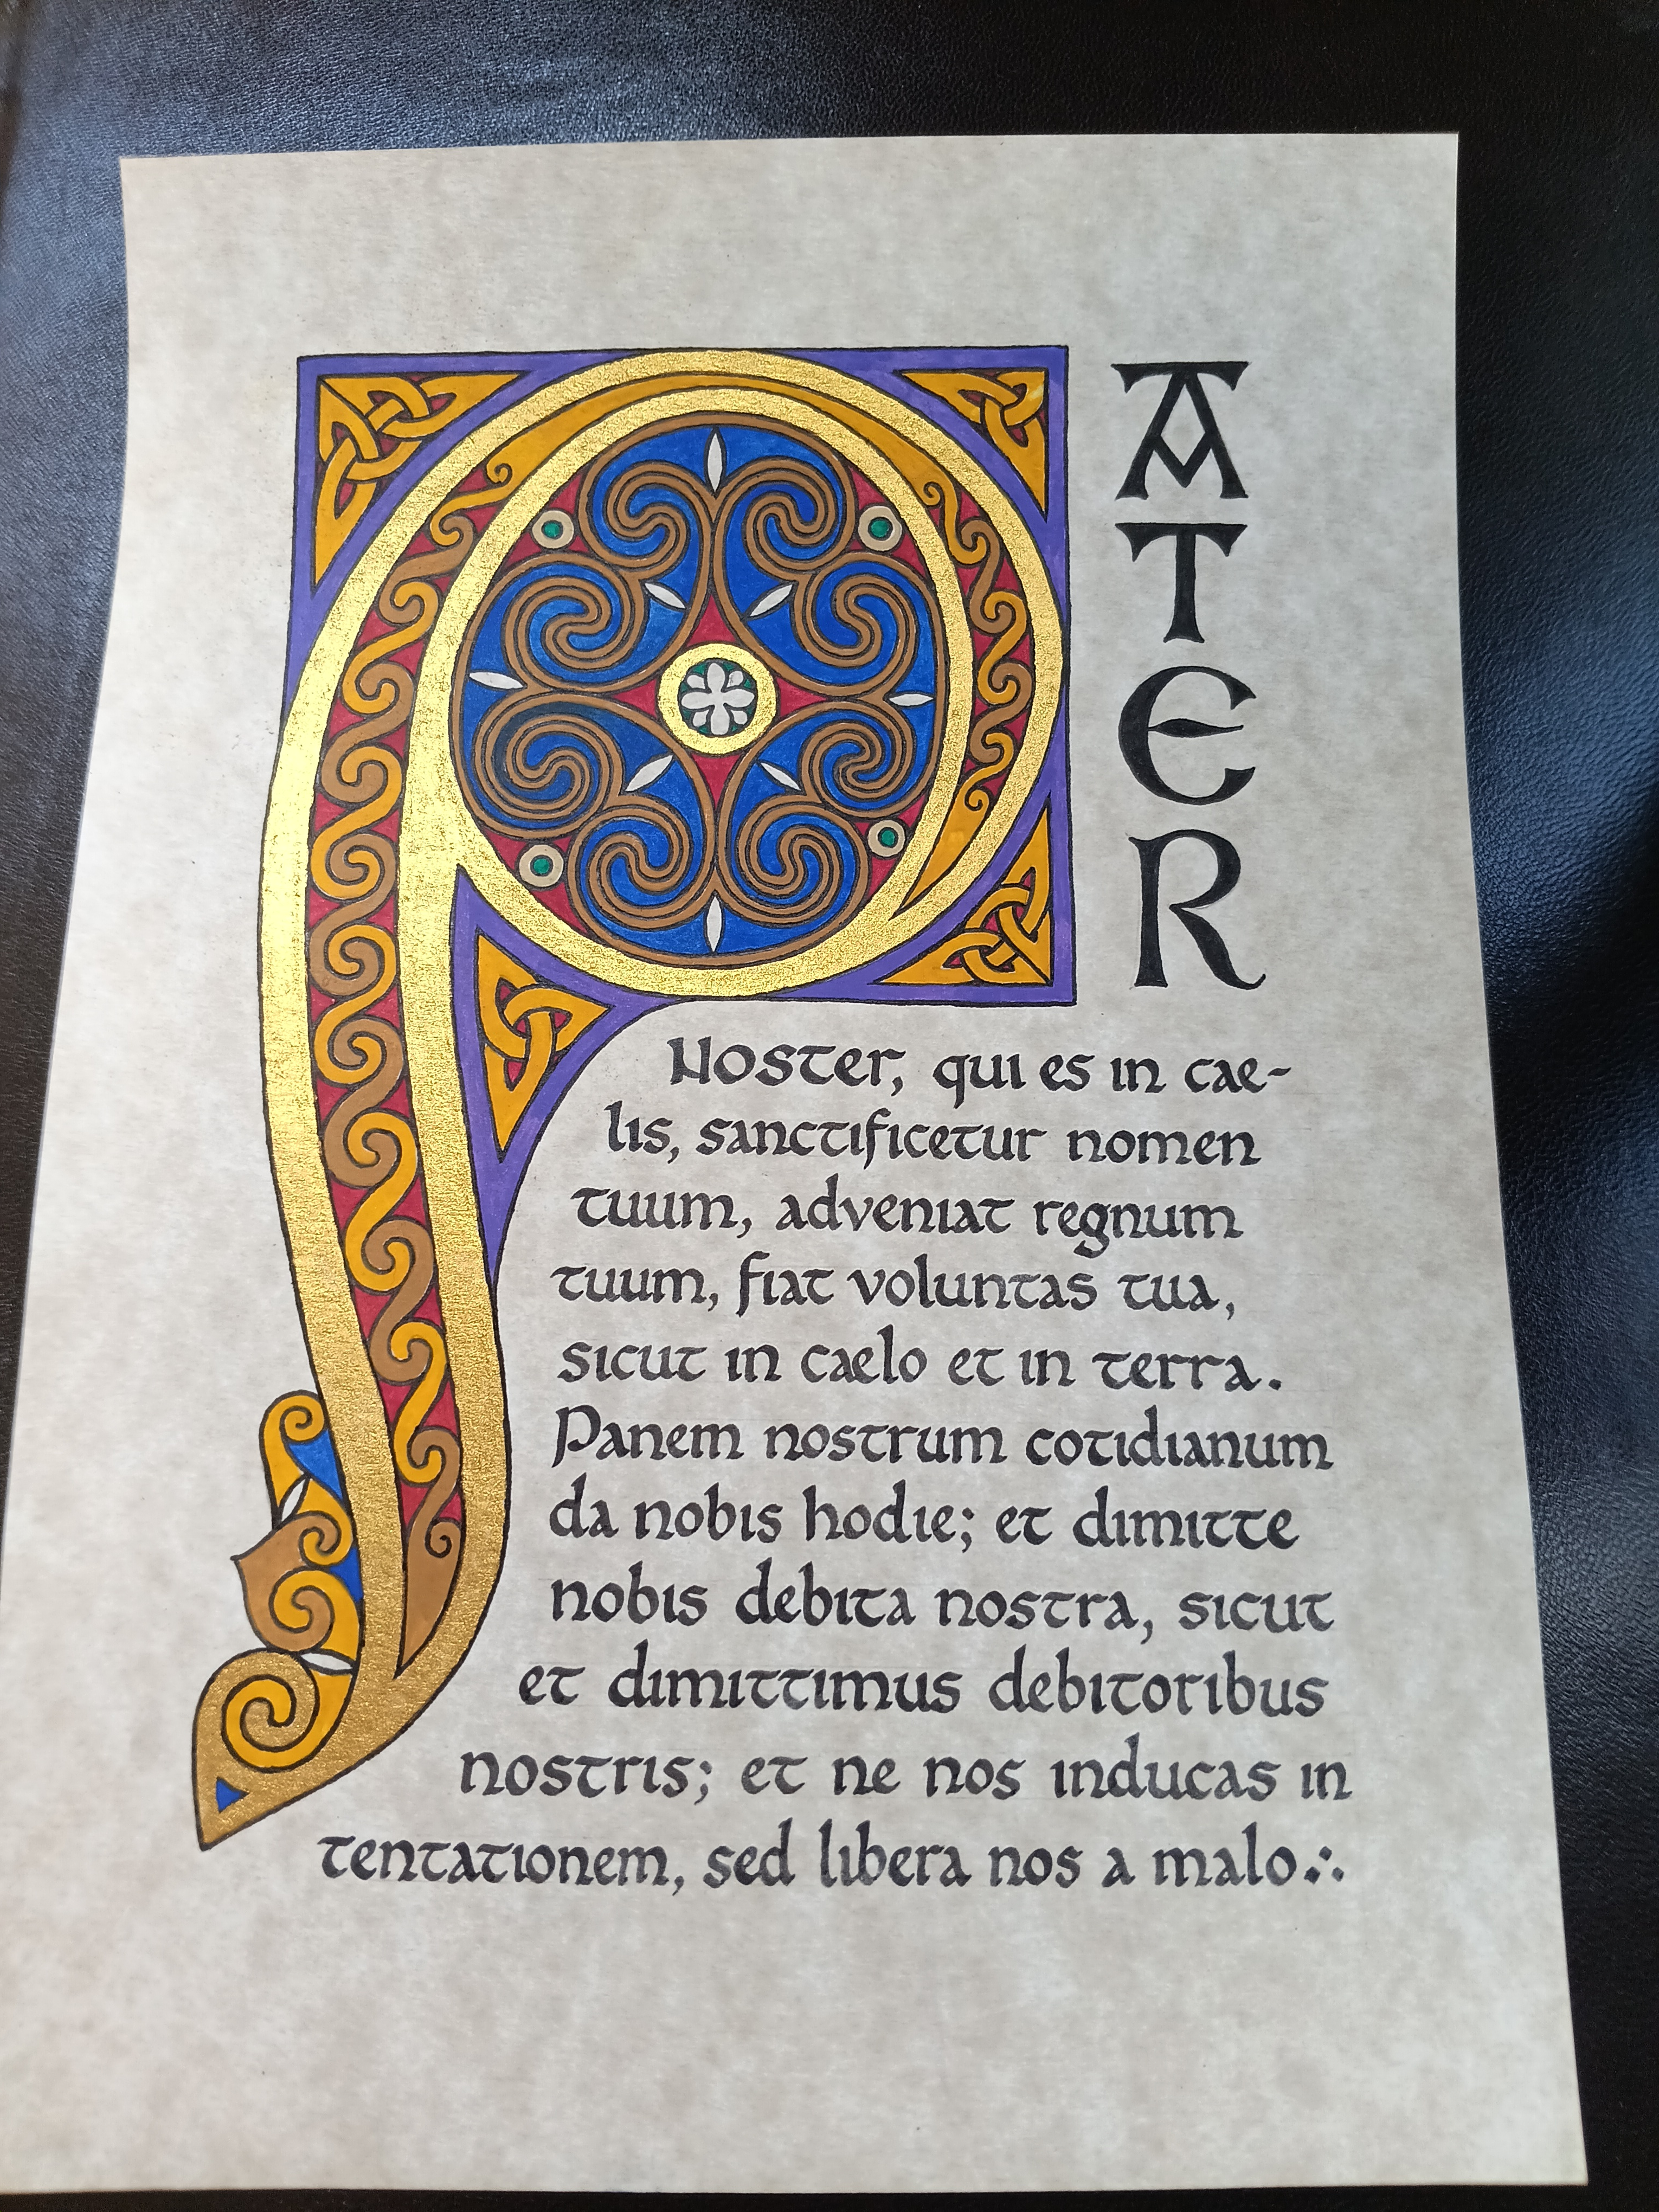 PATER
Noster, qui es in cae-
lis, sanctificetur nomen
tuum, adveniat regnum
tuum, fiat voluntas tua,
sicut in caelo et in terra.
Panem nostrum cotidianum
da nobis hodie; et dimitte
nobis debita nostra, sicut
et dimittimus debitoribus
nostris; et ne nos inducas in
tentationem, sed libera nos a malo∴